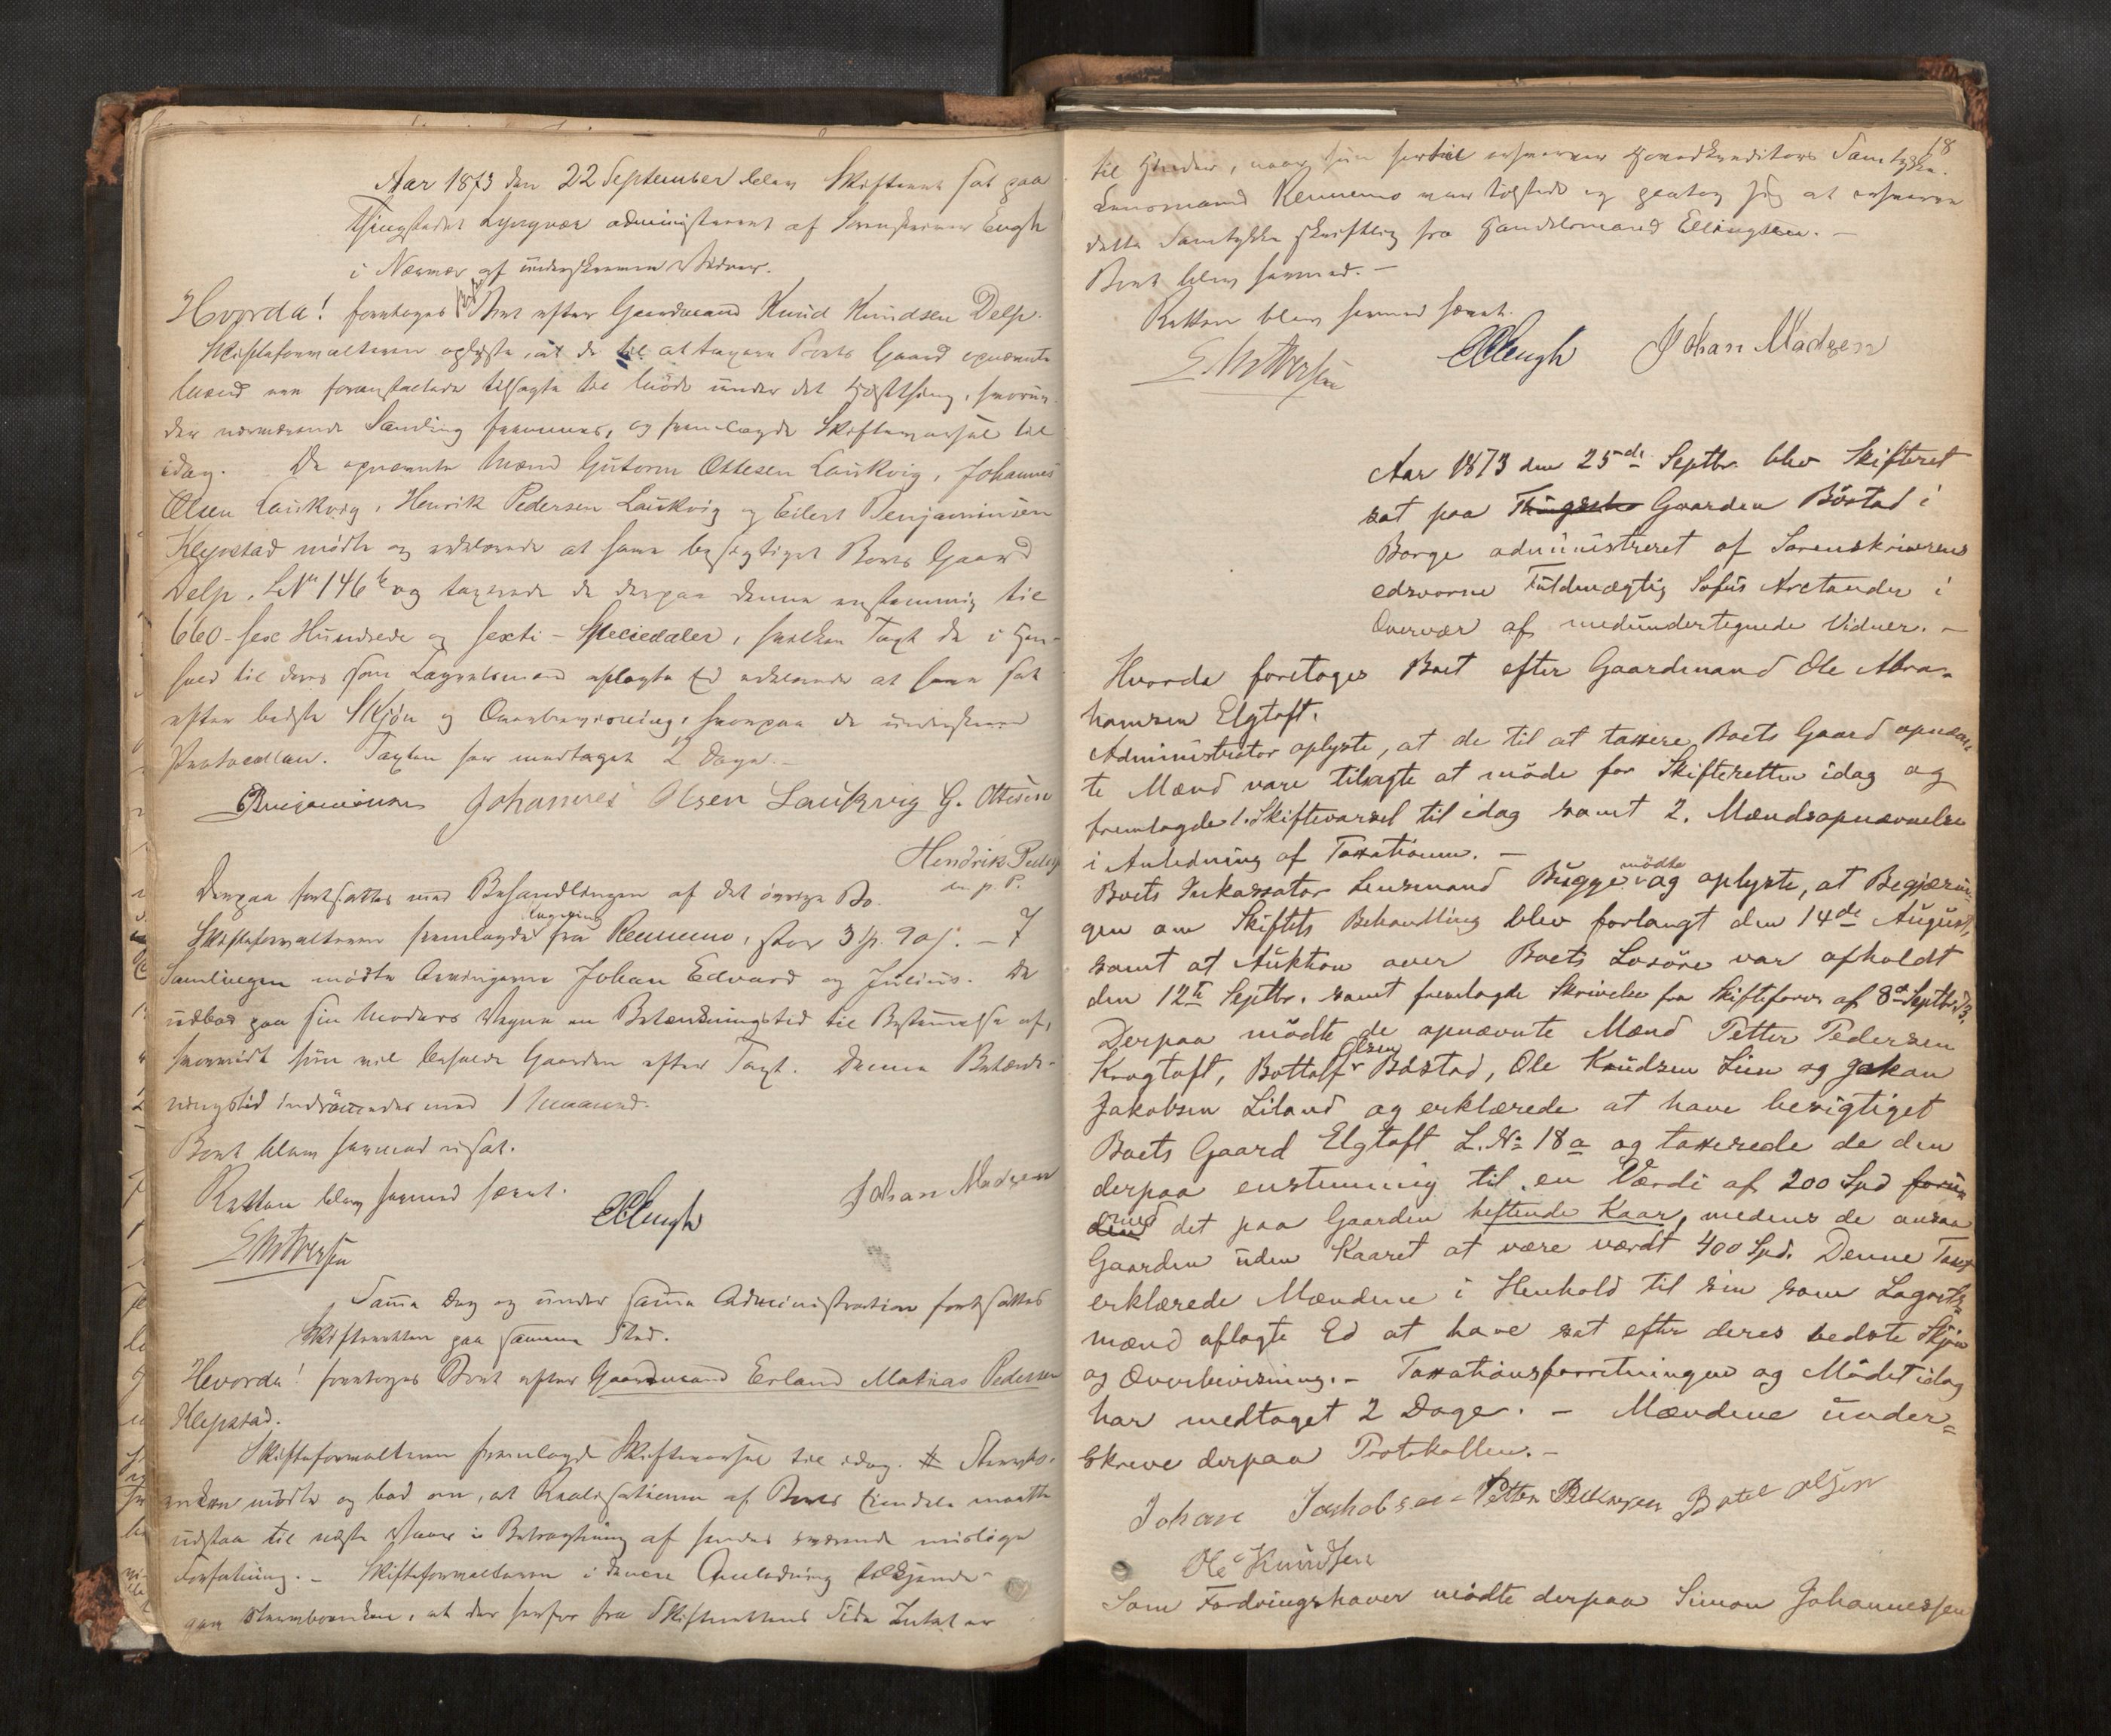 Aar 1873 den 22 September blev Skifteret sat paa
Thingstedet Lyngvær administreret af Sorenskriver Engh
i Nærvær af underskrevne Vidner.
Hvorda! foretoges Boet efter Gaardmand Knud Knudsen Delp.
Skifteforvalteren oplyste, at de til at taxere Boets Gaard opnævnte
Mænd var foranstaltede tilsagte til Møde under det Høstthing, hvorun-
der nærværende Samling fremmes, og fremlagde Skiftevarsel til
idag. De opnævnte Mænd Gutorm Ottesen Laukvig, Johannes
Olsen Laukvig, Henrik Pedersen Laukvig og Eilert Benjaminsen
Klepstad mødte og erklærede at have besigtiget Boets Gaard
Delp, L No 146 b og taxerede de derpaa denne enstemmig til
660 - sex Hundrede og sexti - Speciedaler, hvilken Taxt de i Hen-
hold til deres som Lagretsmænd aflagte Ed erklærede at have sat
efter bedste Skjøn og Overbeviisning, hvorpaa de underskrev
Protocollen. Taxten har medtaget 2 Dage.-
Benjaminsen Johannes Olsen Laukvig G. Ottesen
Hendrik Peders
m. p. P.
Derpaa fortsattes med Behandlingen af det øvrige Bo.
Skifteforvalteren fremlagde Regning fra Rennemo, stor 3 Sp. 90 s. - I
Samlingen mødte Arvingerne Johan Edvard og Julius. De
udbad paa sin Moders Vegne en Betænkningstid til Bestemmelse af,
hvorvidt hun vil beholde Gaarden efter Taxt. Denne Betænk-
ningstid indrømmedes med 1 Maaned.
Boet blev hermed udsat.
Retten blev hermed hævet.
CEngh Johan Madsen
Samme Dag og under samme Administration fortsattes
Skifteretten paa samme Sted.
Hvorda! foretoges Boet efter Gaardmand Erland Matias Pedersen
Klepstad.
Skifteforvalteren fremlagde Skiftevarsel til idag. # Stervbo-
enken mødte og bad om, at Realisationen af Boets Eiendele maatte
udstaa til næste Vaar i Betragtning af hendes nværende mislige
Forfatning. - Skifteforvalteren i denne Anledning tilkjende-
gav Stervboenken, at der herfor fra Skifterettens Side Intet er
18
til Hinder, naar hun hertil erhverver Hovedkreditors Samtykke.
Lensmand Rennemo var tilstede og paatog sig at erhverve
dette Samtykke skriftlig fra Handelsmand Ellingsen. -
Boet blev hermed. -
Retten blev hermed hævet.
CEngh Johan Madsen
Aar 1873 den 25de Septbr. blev Skifteret
sat paa Thingste Gaarden Bøstad i
Borge administreret af Sorenskriverens
edsvorne Fuldmægtig Sofus Arctander i
Overvær af medundertegnede Vidner. -
Hvorda foretoges Boet efter Gaardmand Ole Abra-
hamsen Elgtoft.
Administrator oplyste, at de til at taxere Boets Gaard opnævn-
te Mænd vare tilsagte at møde for Skifteretten idag og
fremlagde 1. Skiftevarsel til idag samt 2. Mændsopnævnelse
i Anledning af Taxationen. -
Boets Inkassator Lensmand Bugge mødte og oplyste, at Begjærin-
gen om Skiftets Behandling blev forlangt den 14de August,
samt at Auktion over Boets Løsøre var afholdt
den 12te Septbr. samt fremlagde Skrivelse fra Skifteforv. af 8de Septbr. 73.
Derpaa mødte de opnævnte Mænd Petter Pedersen
Krogtoft, Bottolf Olsen Bøstad, Ole Knudsen Lien og Johan
Jakobsen Liland og erklærede at have besigtiget
Boets Gaard Elgtoft L. No 18a og taxerede de den
derpaa enstemmig til en Værdi af 200 Spd forun
den med det paa Gaarden heftende Kaar, medens de ansaa
Gaarden uden Kaaret at være værdt 400 Spd. Denne Taxt
erklærede Mændene i Henhold til sin som Lagrets-
mænd aflagte Ed at have sat efter deres bedste Skjøn
og Overbevisning. - Taxationsforretningen og Mødet idag
har medtaget 2 Dage. - Mændene under-
skrev derpaa Protokollen. -
Johan Jakobsen Petter Pedersen Botel Olsen
Ole Knudsen
Som Fordringshaver mødte derpaa Simon Johannessen